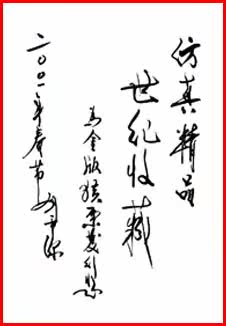 仿真精品
世纪收藏
为金版猴票发行题
二〇〇一年春节